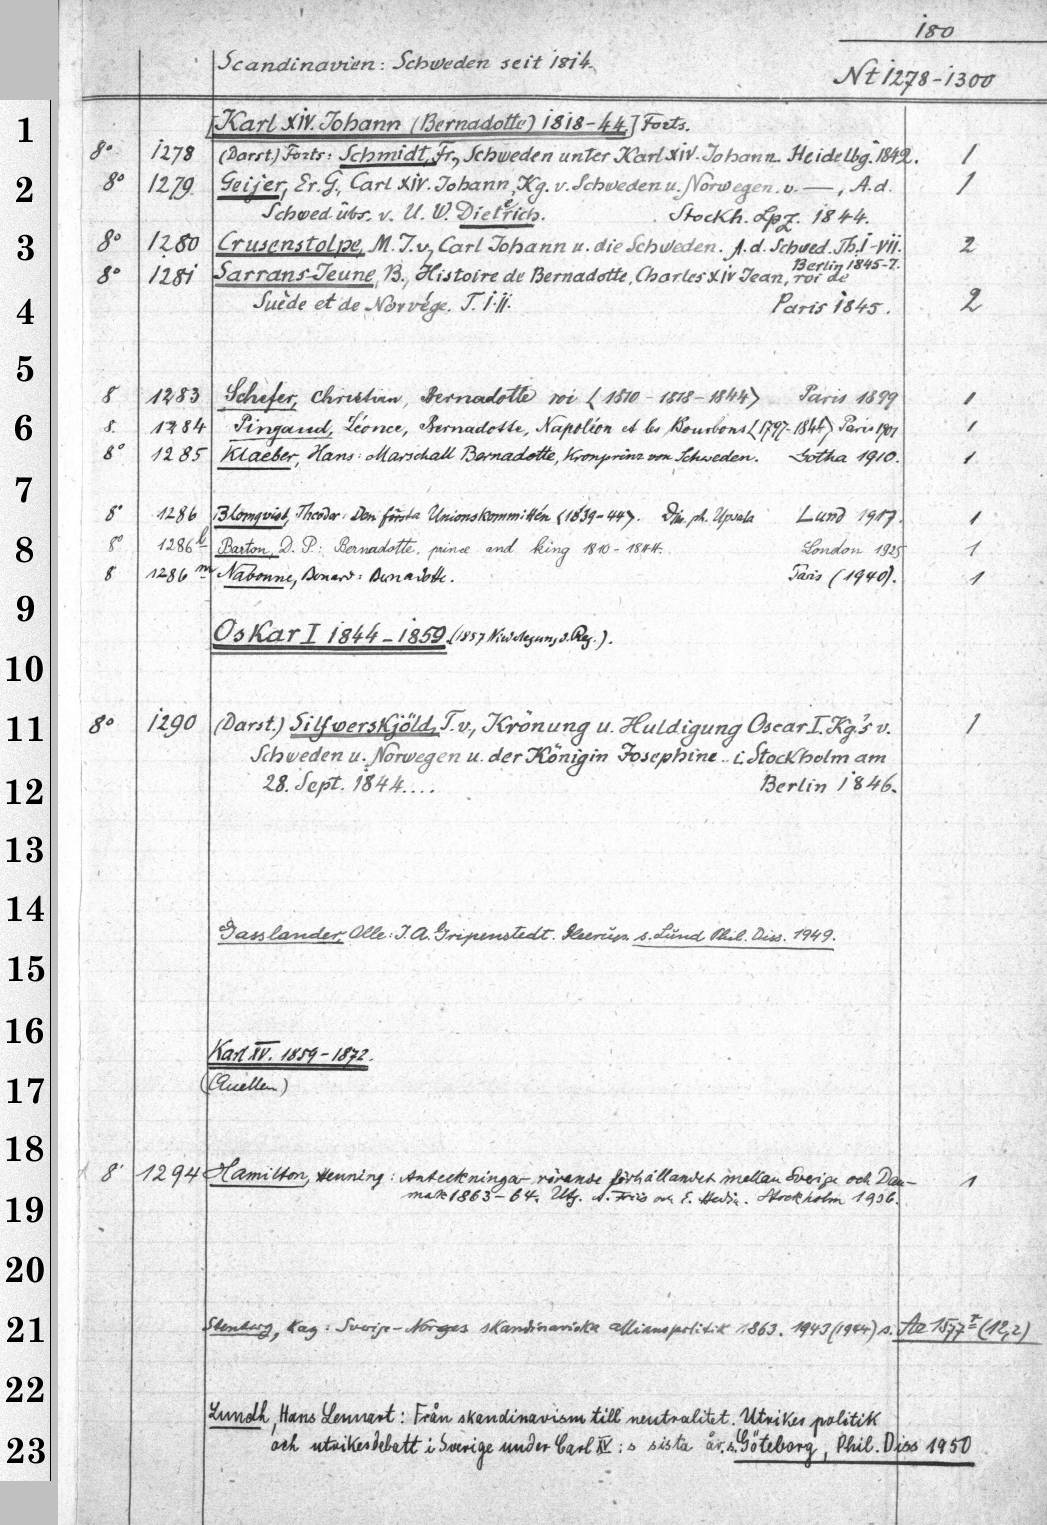 180
Scandinavien: Schweden seit 1814.
Nt 1278-1300
1
[Karl XIV. Johann (Bernadotte) 1818-44.] Forts.
8° 1278 (Darst.) Forts: Schmidt, Fr., Schweden unter Karl XIV. Johann. Heidelbg. 1842. 1
2
8° 1279 Geijer, Er. G., Carl XIV. Johann, Kg. v. Schweden u. Norwegen. v. —, A. d.
Schwed. übs. v. U. W. Dieterich. Stockh. Lpz. 1844. 1
3
8° 1280 Crusenstolpe, M. J. v., Carl Johann u. die Schweden. A. d. Schwed. Th. I-VII. 2
Berlin 1845-7.
8° 1281 Sarrans-Jeune, B., Histoire de Bernadotte, Charles XIV Jean, roi de
4
Suède et de Norvége. T. I. II. Paris 1845. 2
5
8 1283 Schefer, Christian, Bernadotte roi <1810-1818-1844> Paris 1899 1
6
8. 1284 Pingaud, Léonce, Bernadotte, Napoléon et les Bourbons <1797-1844> Paris 1901 1
8° 1285 Klaeber, Hans: Marschall Bernadotte, Kronprinz von Schweden. Gotha 1910. 1
7
8° 1286 Blomqvist, Theodor: Den första Unionskommittén <1839-44>. Diss. ph. Upsala Lund 1917. 1
8
8° 1286 l Barton, D. P.: Bernadotte. prince and king 1810-1844. London 1925 1
8 1286 m Nabonne, Bernard: Bernadotte. Paris (1940). 1
9
Oskar I 1844-1859. (1857 Niederlegung d. Reg.).
10
11
8° 1290 (Darst.) Silfwerskjöld, T. v., Krönung u. Huldigung Oscar I. Kg.'s v. 1
Schweden u. Norwegen u. der Königin Josephine .. i. Stockholm am
12
28. Sept. 1844.... Berlin 1846.
13
14
Gasslander, Olle: J. A. Gripenstedt. s. Lund Phil. Diss. 1949.
15
16
Karl XV. 1859-1872.
17
(Quellen)
18
8° 1294 Hamilton, Henning: Anteckningar rörande förhållandet mellan Sverige och Dan- 1
19
mark 1863-64. Utg. A. Friis och E. Hedin. Stockholm 1936.
20
21
Stenberg, Kag: Sverige-Norges skandinaviska allianspolitik 1863. 1943 (1944) s. Aa 1577 r (12,2)
22
Lundh, Hans Lennart: Från skandinavism till neutralitet. Utrikes politik
23
och utrikesdebatt i Sverige under Carl XV:s sista år. s. Göteborg, Phil. Diss 1950